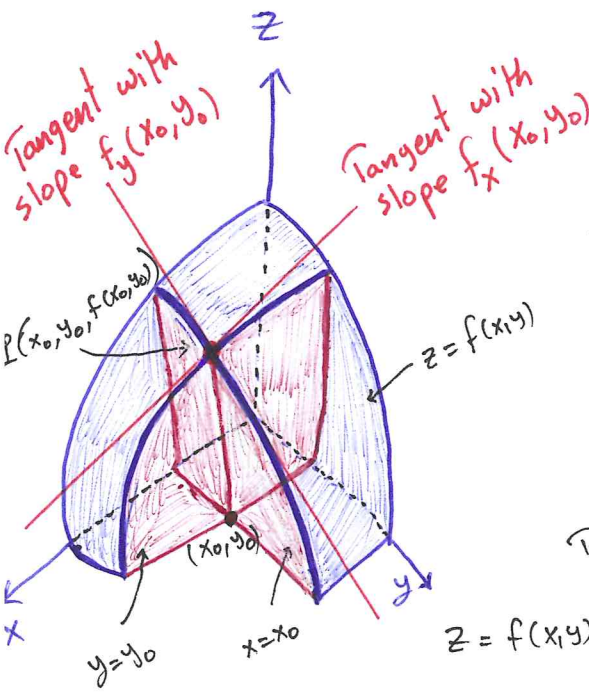 Z
Tangent with
slope f_y(x₀,y₀)
Tangent with
slope f_x(x₀,y₀)
P(x₀,y₀,f(x₀,y₀))
z=f(x,y)
(x₀,y₀)
x
y=y₀
x=x₀
y
Z=f(x,y)